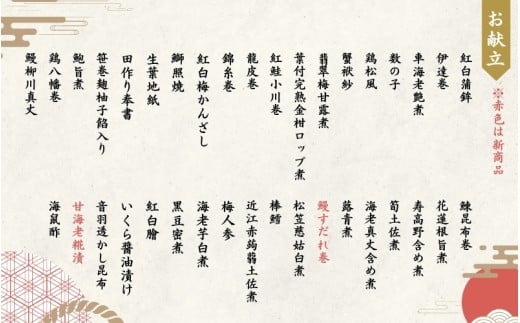 お献立
※赤色は新商品
紅白蒲鉾
伊達巻
車海老艶煮
数の子
鶏松風
蟹袱紗
翡翠梅甘露煮
葉付完熟金柑ロップ煮
紅鮭小川巻
龍皮巻
錦糸巻
紅白梅かんざし
鰤照焼
生葉地紙
田作り奉書
笹巻麩柚子餡入り
鮑旨煮
鶏八幡巻
鰻柳川真丈
鰊昆布巻
花蓮根旨煮
寿高野含め煮
筍土佐煮
海老真丈含め煮
蕗青煮
鰻すだれ巻
松笠慈姑白煮
棒鱈
近江赤蒟蒻土佐煮
梅人参
海老芋白煮
黒豆蜜煮
紅白膾
いくら醤油漬け
音羽透かし昆布
甘海老糀漬
海鼠酢